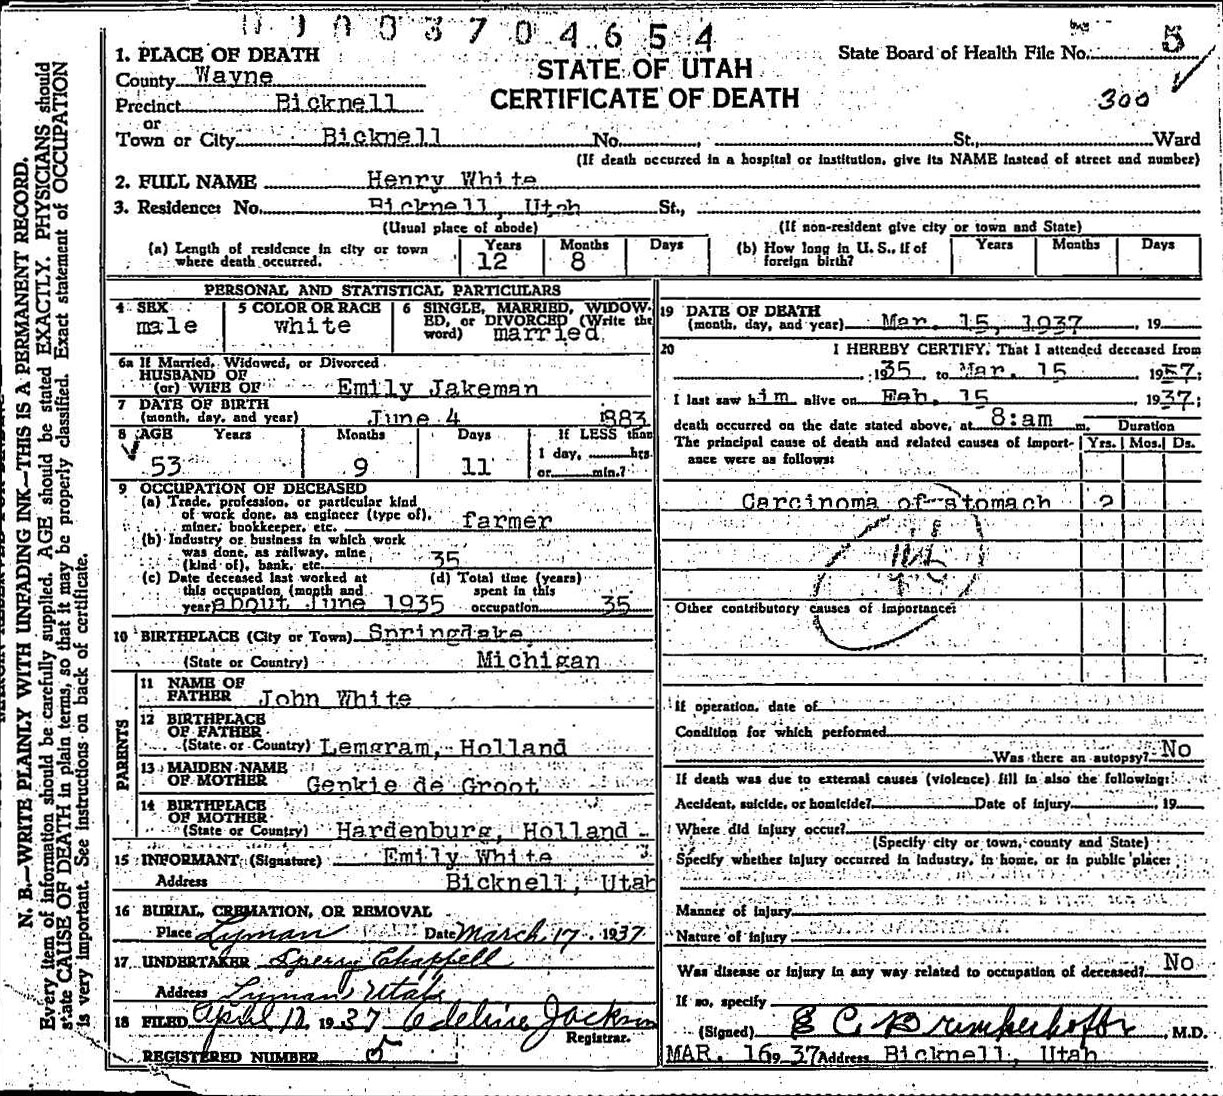 0 9 0 0 3 7 0 4 6 5 4
State Board of Health File No. 5
300
STATE OF UTAH
CERTIFICATE OF DEATH
1. PLACE OF DEATH
County Wayne
Precinct Bicknell
or
Town or City Bicknell No. , St., Ward
(If death occurred in a hospital or institution, give its NAME instead of street and number)
2. FULL NAME Henry White
3. Residence: No. Bicknell, Utah St.,
(Usual place of abode) (If non-resident give city or town and State)
(a) Length of residence in city or town where death occurred. Years 12 Months 8 Days
(b) How long in U. S., if of foreign birth? Years Months Days
PERSONAL AND STATISTICAL PARTICULARS
4 SEX male
5 COLOR OR RACE white
6 SINGLE, MARRIED, WIDOWED, or DIVORCED (Write the word) married
6a If Married, Widowed, or Divorced
HUSBAND OF
(or) WIFE OF Emily Jakeman
7 DATE OF BIRTH
(month, day, and year) June 4 1883
8 AGE Years Months Days If LESS than
53 9 11 1 day, hrs.
or min.?
9 OCCUPATION OF DECEASED
(a) Trade, profession, or particular kind
of work done, as engineer (type of),
miner, bookkeeper, etc. farmer
(b) Industry or business in which work
was done, as railway, mine
(kind of), bank, etc. 35
(c) Date deceased last worked at
this occupation (month and
year) about June 1935
(d) Total time (years)
spent in this
occupation 35
10 BIRTHPLACE (City or Town) Springlake,
(State or Country) Michigan
PARENTS
11 NAME OF
FATHER John White
12 BIRTHPLACE
OF FATHER
(State or Country) Lemgram, Holland
13 MAIDEN NAME
OF MOTHER Genkie de Groot
14 BIRTHPLACE
OF MOTHER
(State or Country) Hardenburg, Holland
15 INFORMANT (Signature) Emily White
Address Bicknell, Utah
16 BURIAL, CREMATION, OR REMOVAL
Place Lyman Date March 17, 1937
17 UNDERTAKER Sperry Chappell
Address Lyman Utah
18 FILED April 12, 1937 Adeline Jackson
Registrar.
REGISTERED NUMBER 5
19 DATE OF DEATH
(month, day, and year) Mar. 15, 1937 , 19
20 I HEREBY CERTIFY, That I attended deceased from
, 1935, to Mar. 15 1937;
I last saw him alive on Feb. 15 1937;
death occurred on the date stated above, at 8:am m. Duration
The principal cause of death and related causes of importance were as follows: Yrs. Mos. Ds.
Carcinoma of stomach 2
46
Other contributory causes of importance:
If operation, date of
Condition for which performed
Was there an autopsy? No
If death was due to external causes (violence) fill in also the following:
Accident, suicide, or homicide? Date of injury , 19
Where did injury occur?
(Specify city or town, county and State)
Specify whether injury occurred in industry, in home, or in public place:
Manner of injury
Nature of injury
Was disease or injury in any way related to occupation of deceased? No
If so, specify
(Signed) , M.D.
MAR. 16 1937 Address Bicknell, Utah
N. B.—WRITE PLAINLY WITH UNFADING INK—THIS IS A PERMANENT RECORD.
Every item of information should be carefully supplied. AGE should be stated EXACTLY. PHYSICIANS should
state CAUSE OF DEATH in plain terms, so that it may be properly classified. Exact statement of OCCUPATION
is very important. See instructions on back of certificate.